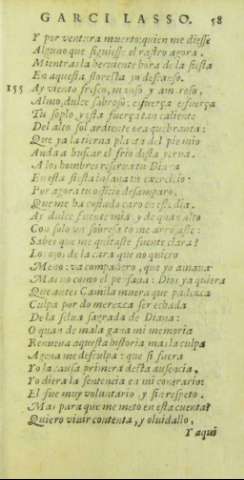 GARCI LASSO. 58
Y por ventura muerto: quien me diesse
Alguno que siguiesse el rastro agora.
Mientras la herviente hora de la siesta
En aquesta floresta yo descanso.
155 Ay viento fresco, manso y amoroso,
Almo, dulce sabroso: esfuerça esfuerça
Tu soplo, y esta fuerça tan caliente
Del alto sol ardiente ora quebranta:
Que ya la tierna planta del pie mio
Anda a buscar el frio desta yerva.
A los hombres reserva tu Diana
En esta siesta insana tu exercicio:
Por agora tu officio desamparo,
Que me ha costado caro en este dia.
Ay dulce fuente mia, y de quan alto
Con solo un sobresalto me arrojaste:
Sabes que me quitaste fuente clara?
Los ojos de la cara que no quiero
Menos un compañero, que yo amava:
Mas no como el pensava: Dios ya quiera
Que antes Camila muera que padezca
Culpa por do merezca ser echada
De la selva sagrada de Diana:
O quan de mala gana mi memoria
Renueva aquesta historia mas la culpa
Agena me desculpa: que si fuera
Yo la causa primera desta ausencia,
Yo diera la sentencia en mi contrario:
El fue muy voluntario, y sin respeto.
Mas para que me meto en esta cuenta?
Quiero vivir contenta, y olvidallo,
Y aqui